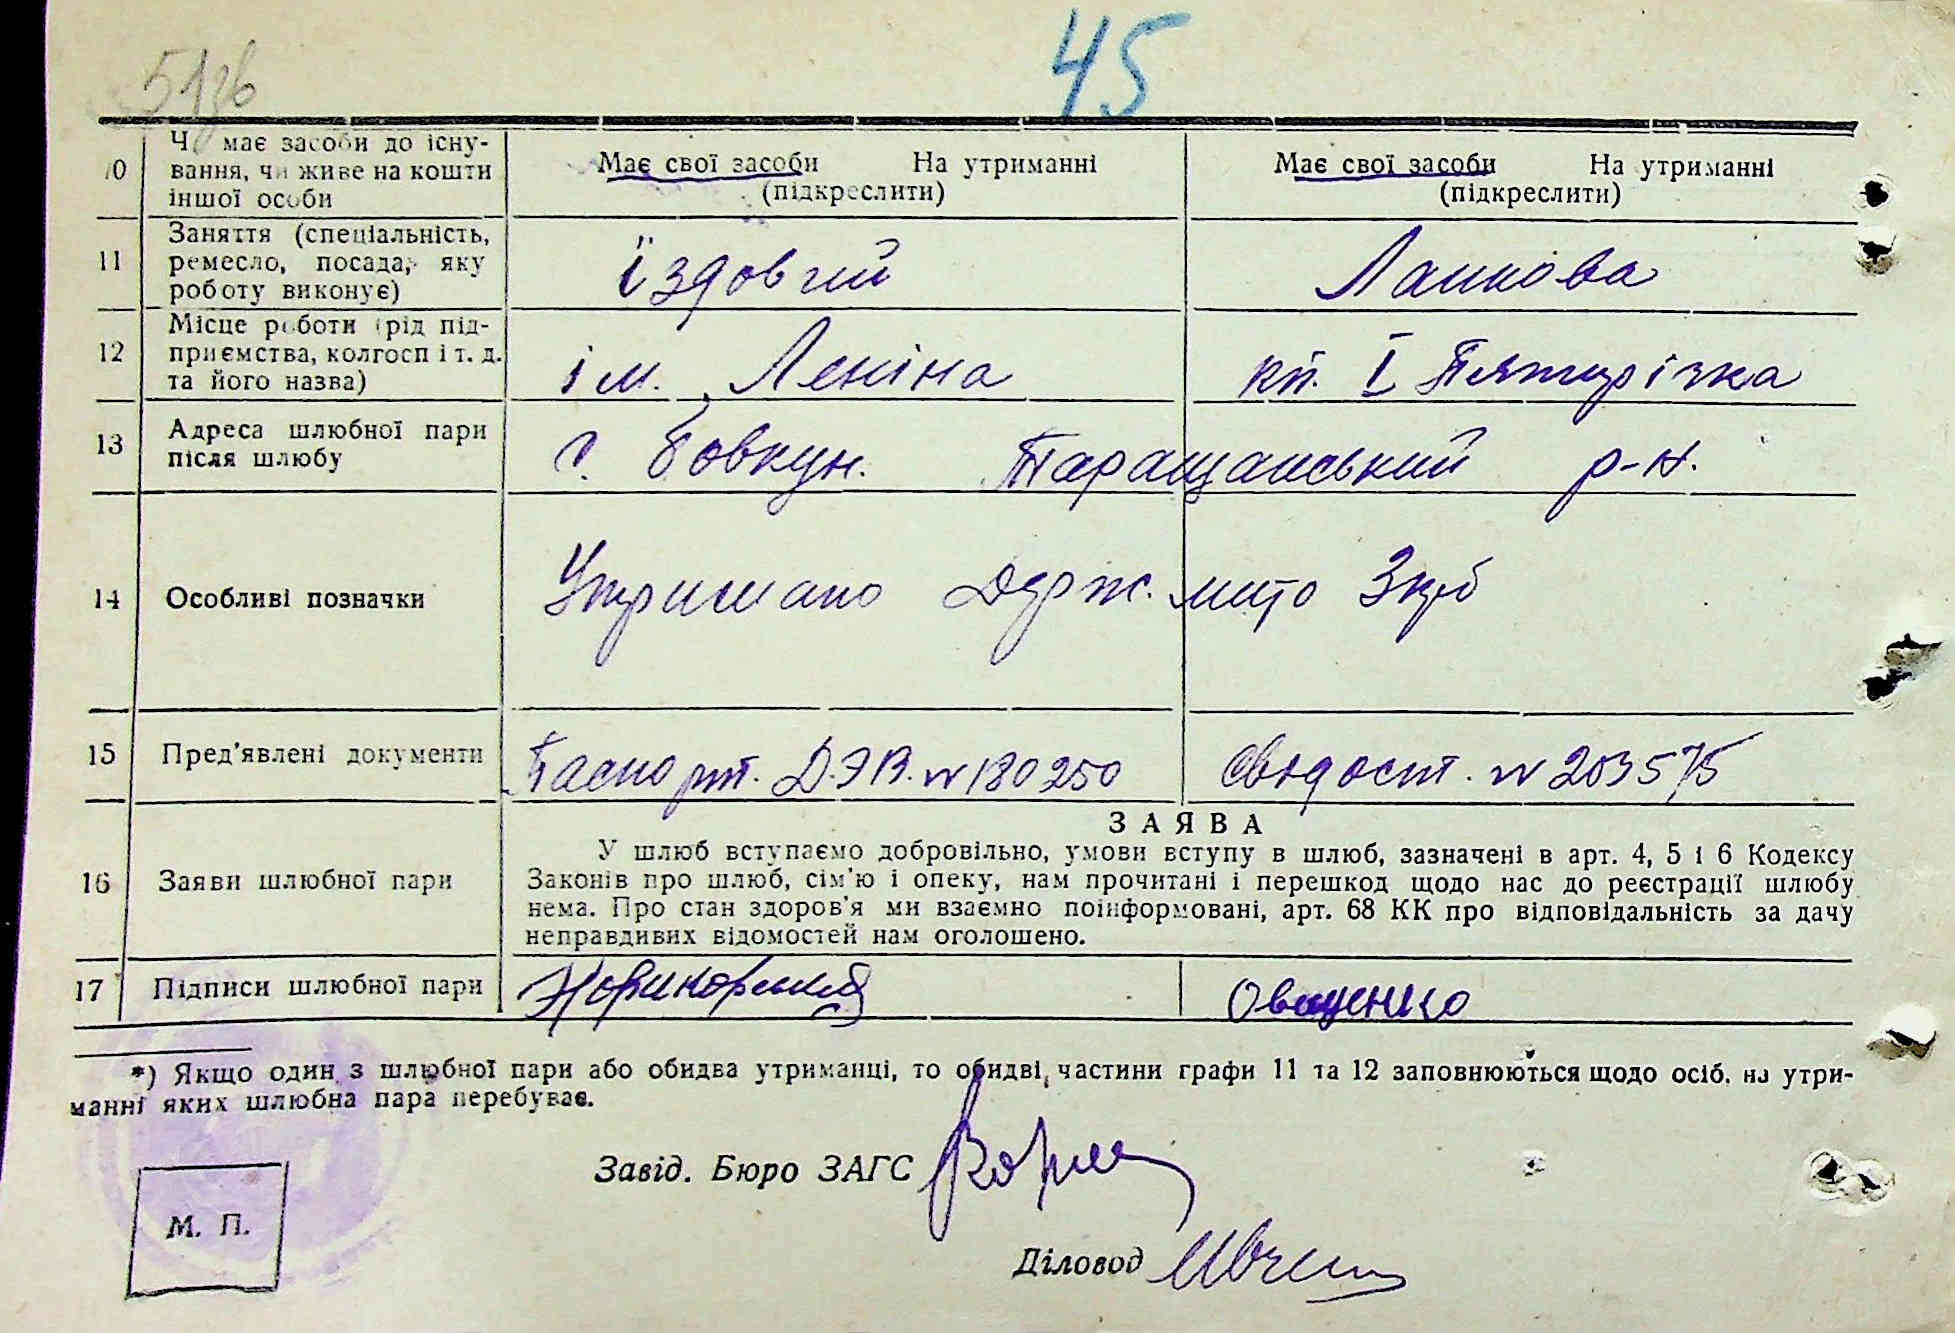 45
51зв
10 Чи має засоби до існу- Має свої засоби На утриманні Має свої засоби На утриманні
вання, чи живе на кошти (підкреслити) (підкреслити)
іншої особи
11 Заняття (спеціальність, їздовгий Ланкова
ремесло, посада, яку
роботу виконує)
12 Місце роботи (рід під- ім. Леніна кп. І Пятирічка
приємства, колгосп і т. д.
та його назва)
13 Адреса шлюбної пари с. Бовкун. Таращанський р-н.
після шлюбу
14 Особливі позначки Утримано Держ. мито 3крб
15 Пред'явлені документи Паспорт. Д.ЭВ. № 180250 Свідост. № 203575
ЗАЯВА
16 Заяви шлюбної пари У шлюб вступаємо добровільно, умови вступу в шлюб, зазначені в арт. 4, 5 і 6 Кодексу
Законів про шлюб, сім'ю і опеку, нам прочитані і перешкод щодо нас до реєстрації шлюбу
нема. Про стан здоров'я ми взаємно поінформовані, арт. 68 КК про відповідальність за дачу
неправдивих відомостей нам оголошено.
17 Підписи шлюбної пари Овщенко
*) Якщо один з шлюбної пари або обидва утриманці, то обидві частини графи 11 та 12 заповнюються щодо осіб, на утри-
манні яких шлюбна пара перебуває.
Завід. Бюро ЗАГС
Діловод
М. П.